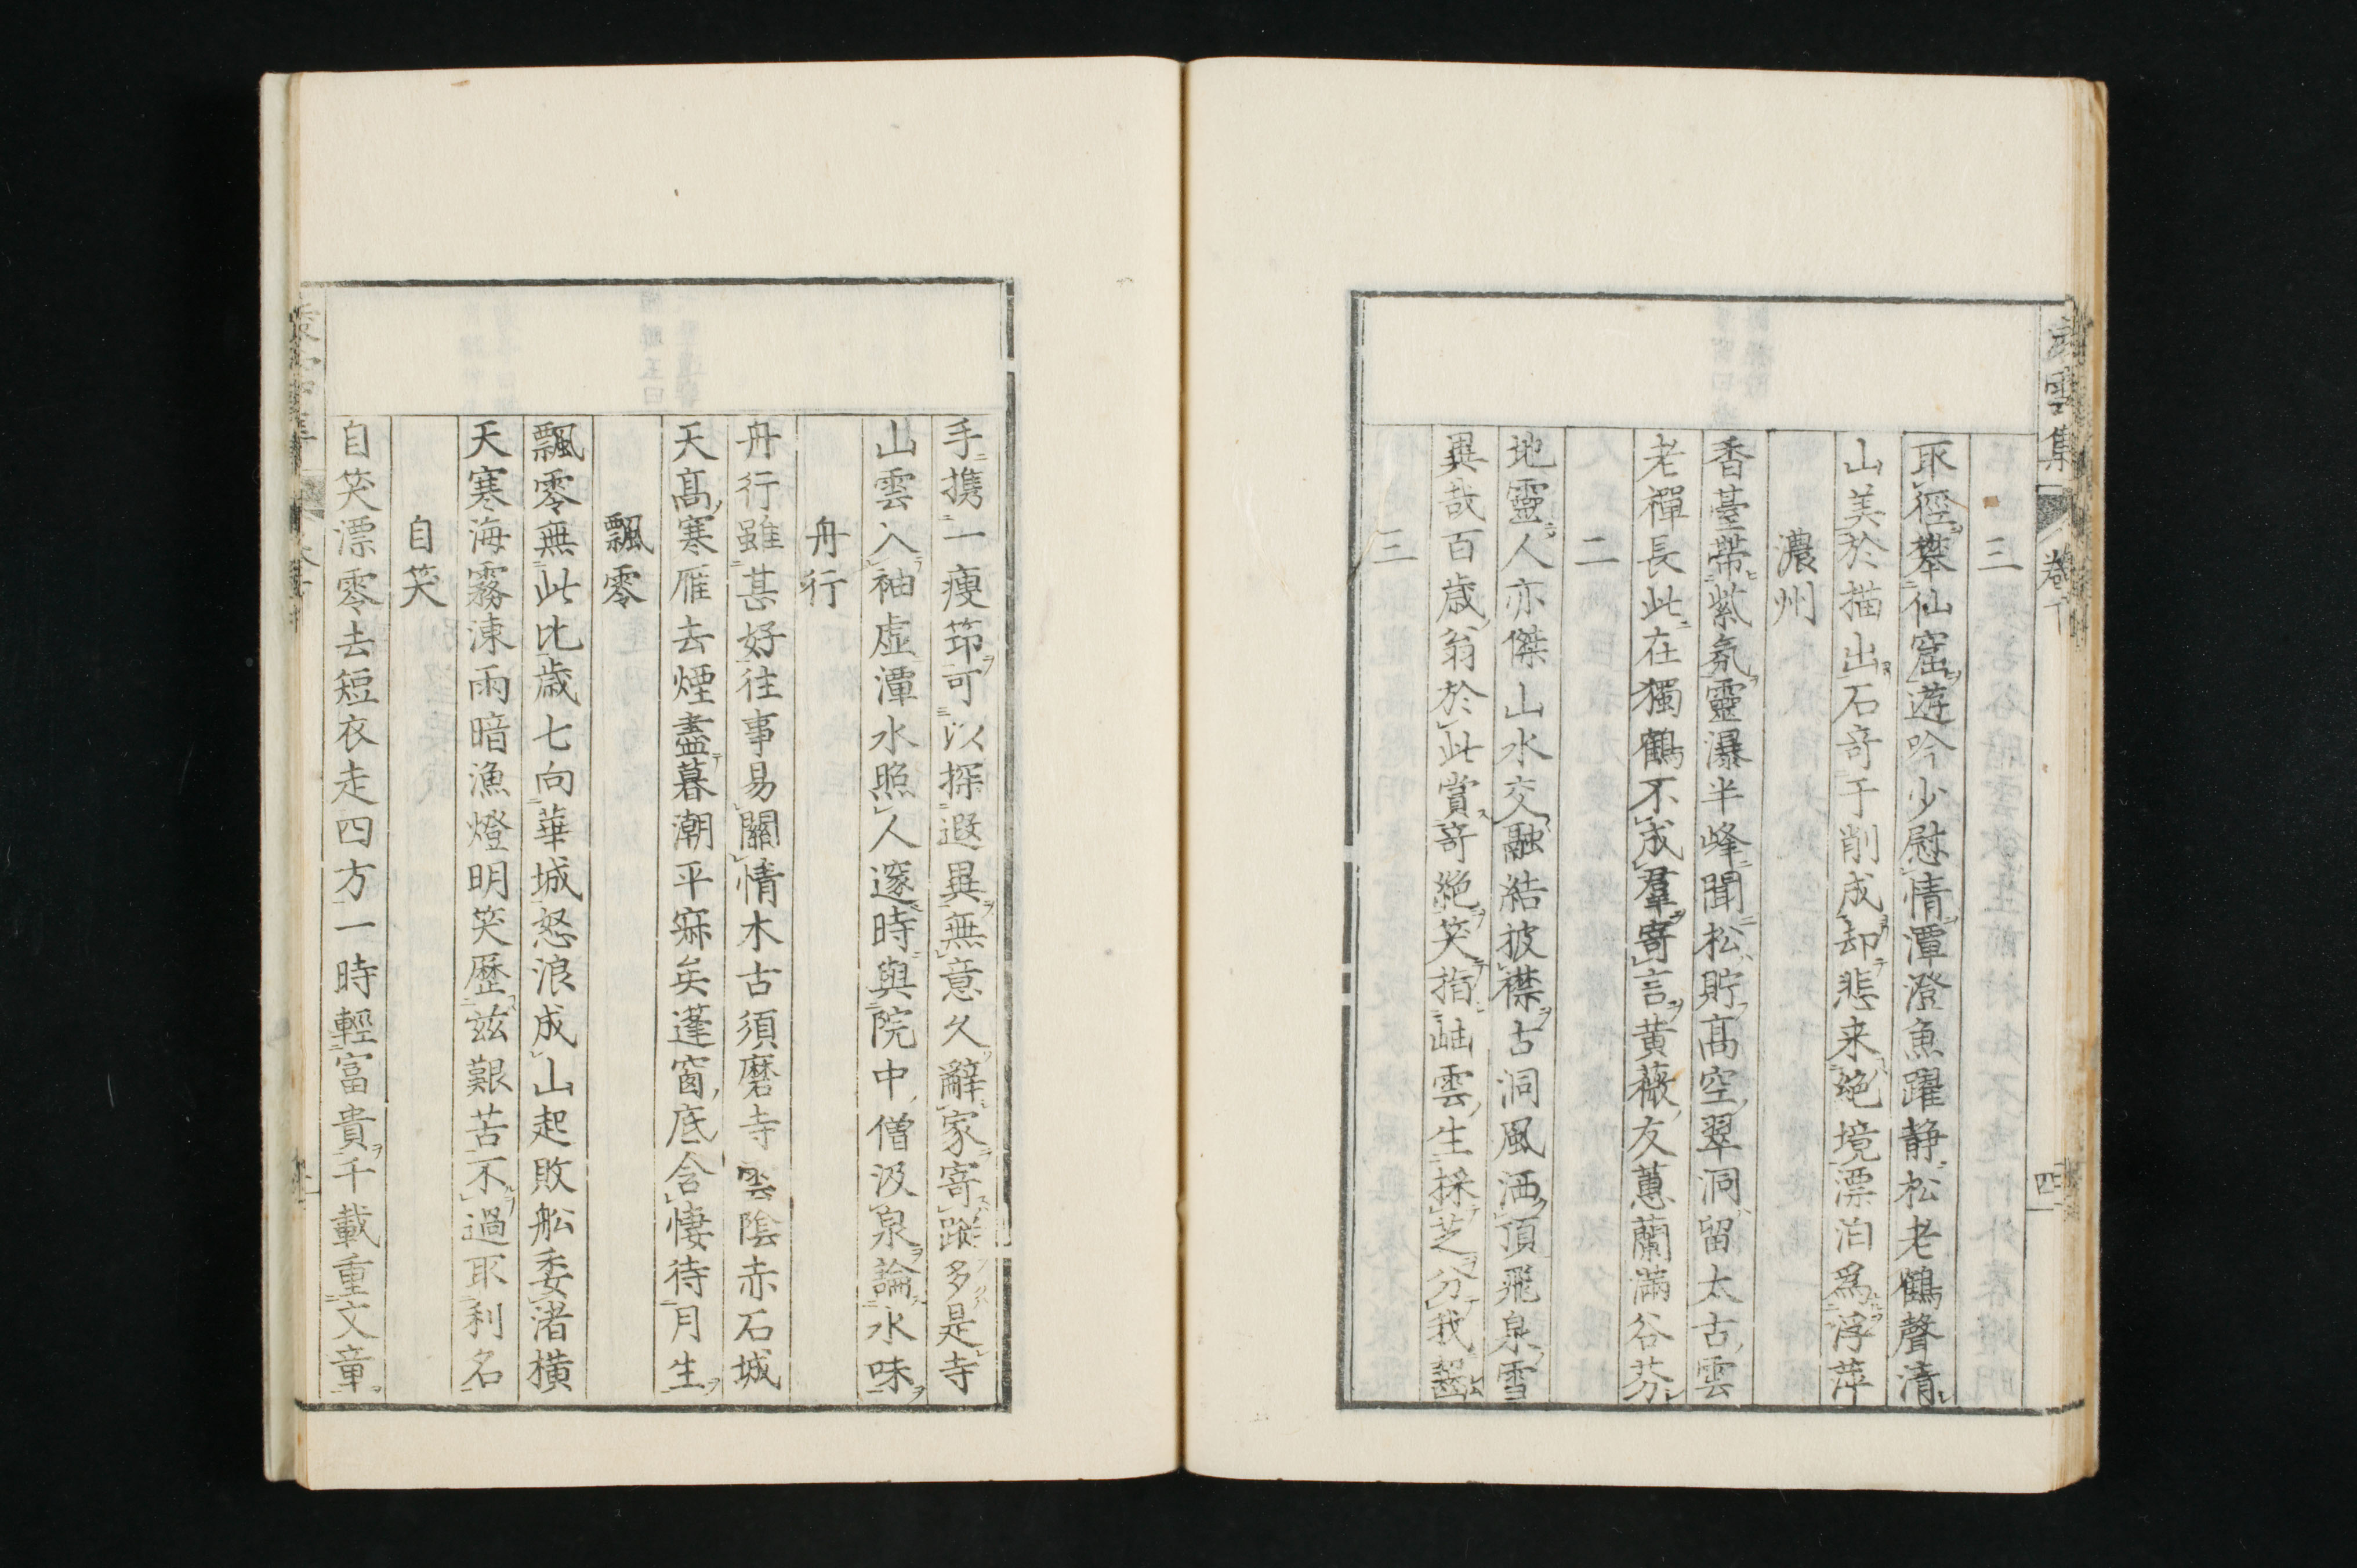 三
取徑攀仙窟遊吟少慰情潭澄魚躍静松老鶴聲清
山美於描出石竒于削成却悲来絶境漂泊爲浮萍
濃州
香臺帶紫氛靈瀑半峰聞松貯髙空翠洞留太古雲
老禪長此在獨鶴不成羣寄言黄薇友蕙蘭滿谷芬
二
地靈人亦傑山水交融結披襟古洞風洒頂飛泉雪
異哉百歳翁於此賞竒絶笑指岫雲生採芝分我齧
三
集
四
手携一瘦筇可以探遐異無意久辭家寄蹤多是寺
山雲入袖虚潭水照人邃時與院中僧汲泉論水味
舟行
舟行雖甚好往事易關情木古須磨寺雲陰赤石城
天髙寒雁去煙盡暮潮平寐矣蓬窗底含悽待月生
飄零
飄零無此比歳七向華城怒浪成山起敗舩委渚横
天寒海霧凍雨暗漁燈明笑歴兹艱苦不過取利名
自笑
自笑漂零去短衣走四方一時輕富貴千載重文章